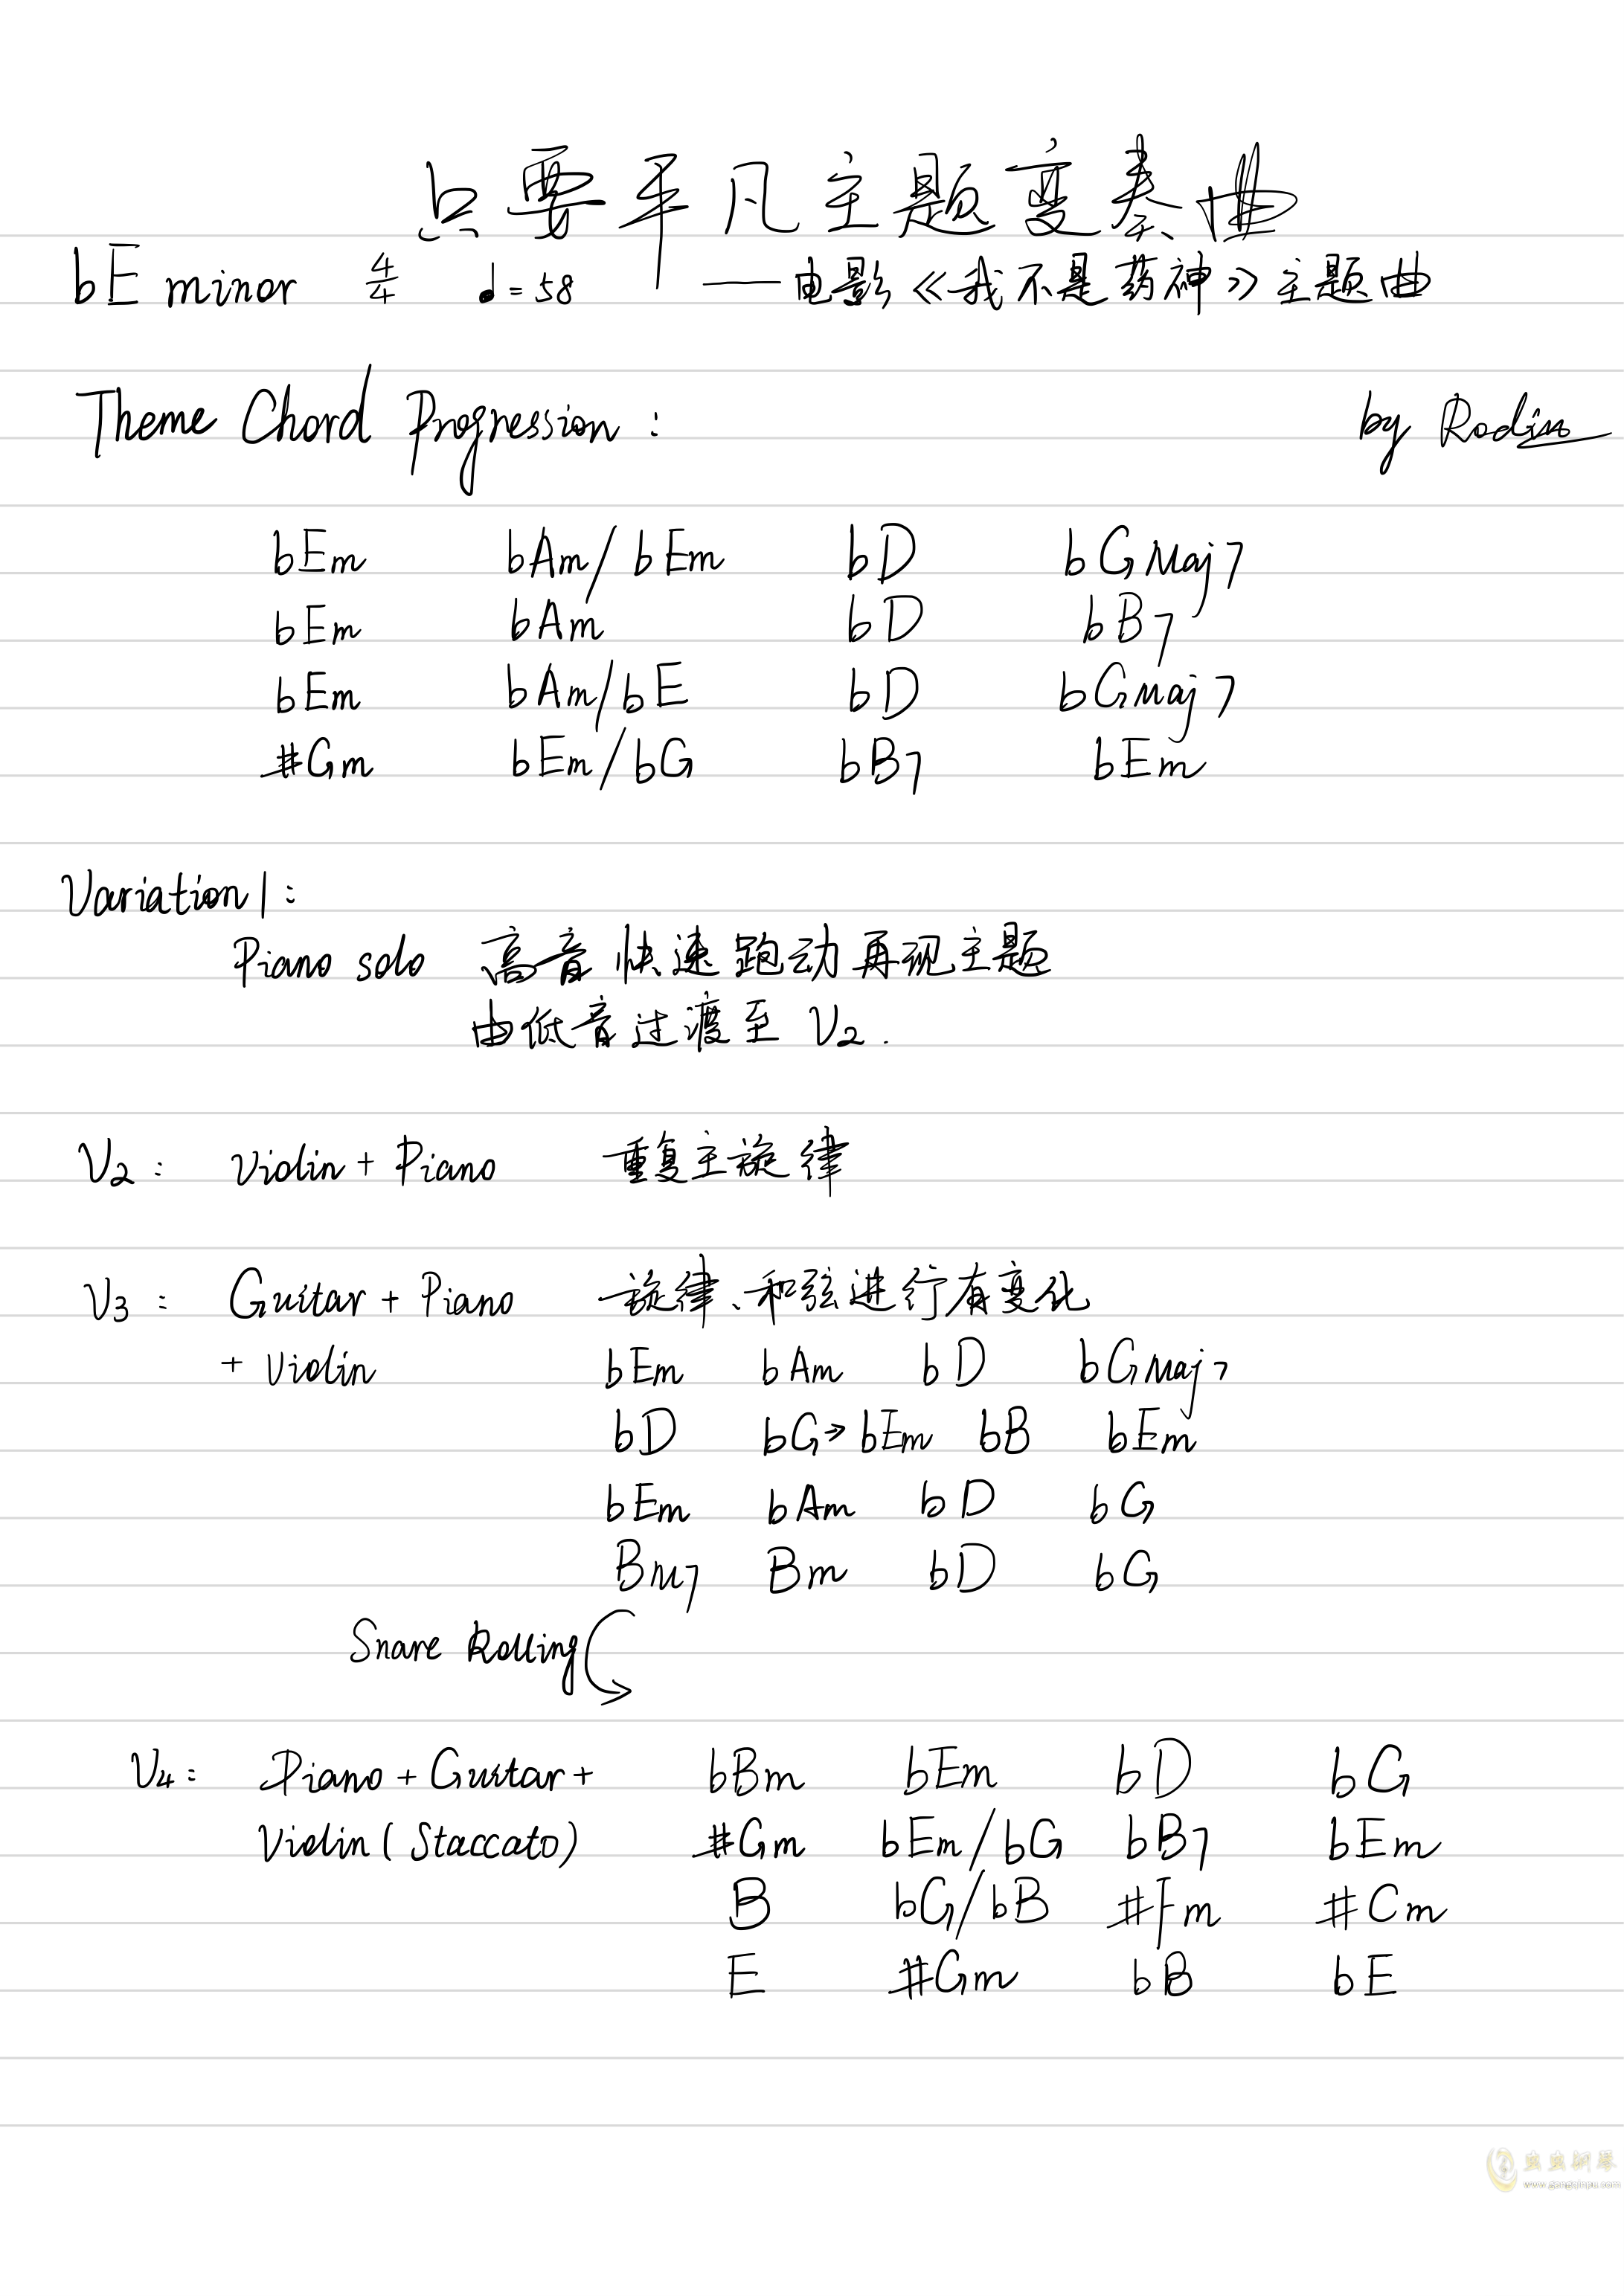 只要平凡主题变奏曲
bE minor 4/4 ♩=58 ——电影《我不是药神》主题曲
Theme Chord Progression: by Rodin
bEm bAm/bEm bD bGMaj7
bEm bAm bD bB7
bEm bAm/bE bD bGMaj7
#Gm bEm/bG bB7 bEm
Variation 1:
Piano solo 高音快速跑动再现主题
由低音过渡至 V2.
V2: violin + Piano 重复主旋律
V3: Guitar + Piano 旋律、和弦进行有变化
+ violin bEm bAm bD bGMaj7
bD bG→bEm bB bEm
bEm bAm bD bG
BM7 Bm bD bG
Snare Rolling
V4: Piano + Guitar + bBm bEm bD bG
Violin (Staccato) #Gm bEm/bG bB7 bEm
B bG/bB #Fm #Cm
E #Gm bB bE
虫虫钢琴
www.gangqinpu.com